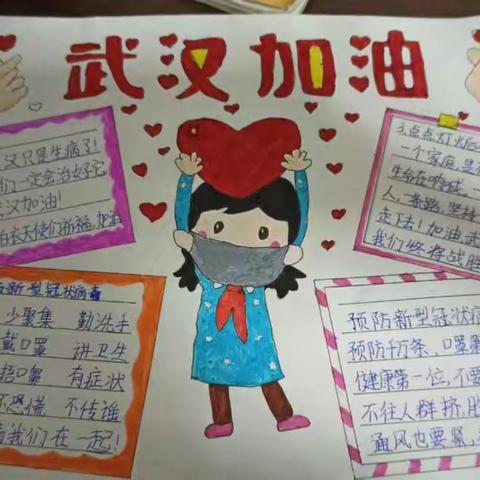 武汉加油
汉只是生病了!
们一定会治好它
汉加油!
白衣天使们祈福,加油
点点灯火
一个家庭
走下去!加油,武
我们终将战胜
新型冠状病毒
少聚集 勤洗手
戴口罩 讲卫生
捂口罩 有症状
不恐慌 不传谣
我们在一起!
预防新型冠状病
预防千万条,口罩
健康第一位,不要
不往人群挤,
通风也要紧,